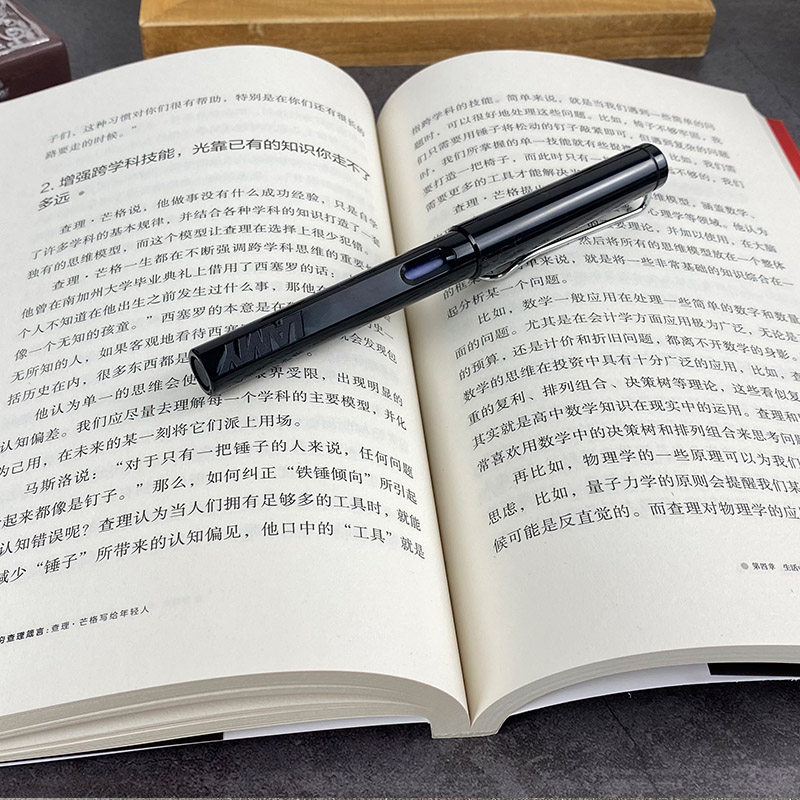 子们，这种习惯对你们很有帮助，特别是在你们还有很长的
路要走的时候。”
2. 增强跨学科技能，光靠已有的知识你走不了
多远
查理·芒格说，他做事没有什么成功经验，只是自学
了许多学科的基本规律，并结合各种学科的知识打造了一套
独有的思维模型，而这个模型让查理在选择上很少犯错。
查理·芒格一生都在不断强调跨学科思维的重要
他曾在南加州大学毕业典礼上借用了西塞罗的话：
个人不知道在他出生之前发生过什么事，那他
像一个无知的孩童。”西塞罗的本意是在
无所知的人，如果客观地看待西塞 就会发现包
括历史在内，很多东西都是
他认为单一的思维会使 眼界受限，出现明显的
认知偏差。我们应尽量去理解每一个学科的主要模型，并化
为己用，在未来的某一刻将它们派上用场。
马斯洛说：“对于只有一把锤子的人来说，任何问题
起来都像是钉子。”那么，如何纠正“铁锤倾向”所引起
认知错误呢？查理认为当人们拥有足够多的工具时，就能
减少“锤子”所带来的认知偏见，他口中的“工具”就是
的查理箴言：查理·芒格写给年轻人
指跨学科的技能。简单来说，就是当我们遇到一些简单的问
题时，可以很好地处理这些问题。比如，椅子不够牢固，我
们只需要用锤子将松动的钉子敲紧即可，但遇到复杂的问题
时，我们所掌握的单一技能就有些捉 比如，我们需
要打造一把椅子，而此时只有一 是不够的，我们
需要更多的工具才能解决
查理·芒格提出 思维模型，涵盖数学、
心理学等领域。他认为
要理论，并加以使用，在大脑
然后将所有的思维模型放在一个整体
的框 单来说，就是将一些非常基础的知识综合在一
起分析某一个问题。
比如，数学一般应用在处理一些简单的数字和数量
面的问题。尤其是在会计学方面应用极为广泛，无论是
的预算，还是计价和折旧问题，都离不开数学的身影。
数学的思维在投资中具有十分广泛的应用，比如，查
重的复利、排列组合、决策树等理论，这些看似复
其实就是高中数学知识在现实中的运用。查理和
常喜欢用数学中的决策树和排列组合来思考问
再比如，物理学的一些原理可以为我们
思虑，比如，量子力学的原则会提醒我们某
候可能是反直觉的。而查理对物理学的应
第四章 生活
LAMY